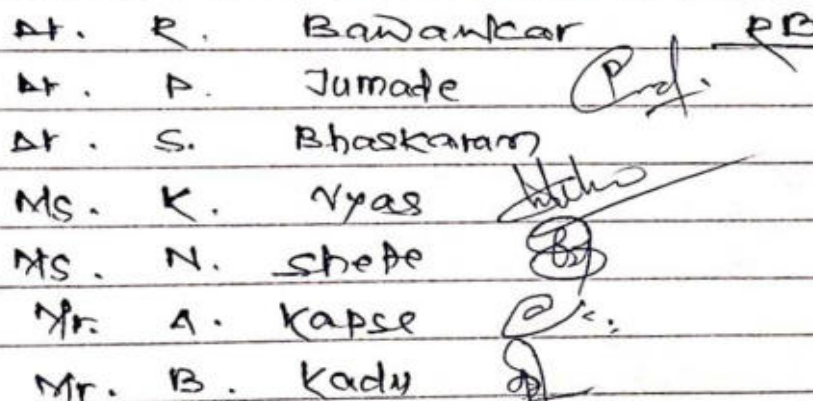 Dr. R. Bawankar RB
Dr. P. Jumade
Dr. S. Bhaskaram
Ms. K. Vyas
Ms. N. Shete
Mr. A. Kapse
Mr. B. Kadu